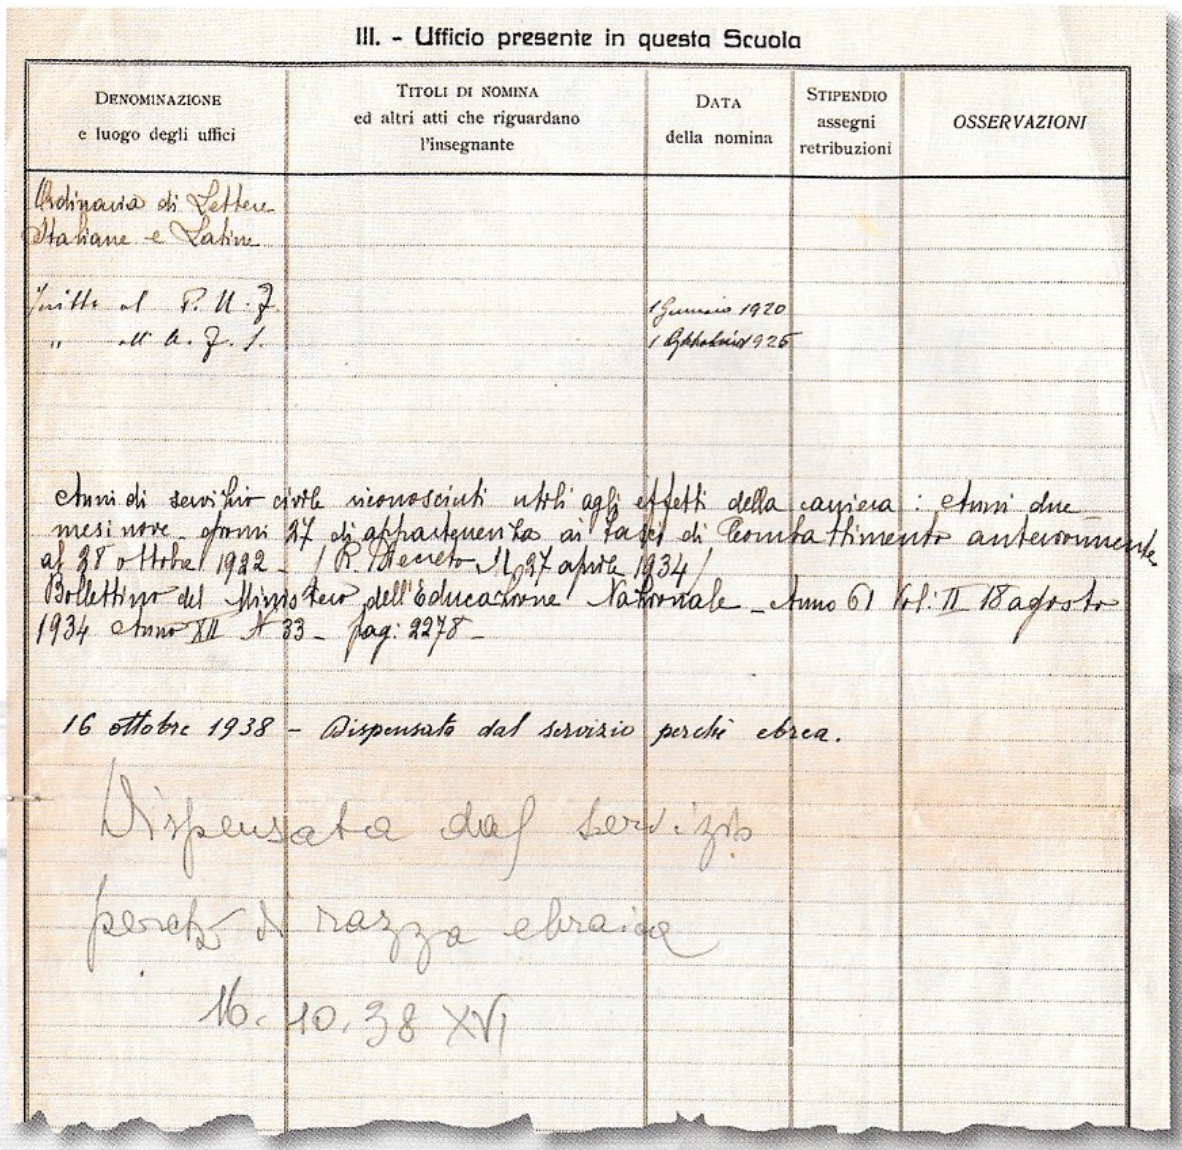 III. - Ufficio presente in questa Scuola
DENOMINAZIONE
e luogo degli uffici
TITOLI DI NOMINA
ed altri atti che riguardano
l'insegnante
DATA
della nomina
STIPENDIO
assegni
retribuzioni
OSSERVAZIONI
Ordinaria di Lettere
Italiane e Latine
al P. N. F. 1 Gennaio 1920
" all' A. F. S. 1 1926
Anni di servizio civile riconosciuti utili agli effetti della carriera : Anni due
mesi nove giorni 27 di appartenenza ai Fasci di Combattimento anteriormente
al 28 ottobre 1922 - ( R. Decreto 27 aprile 1934 )
Bollettino del Ministero dell'Educazione Nazionale - Anno 61 Vol: II 18 agosto
1934 Anno XII N 33 - pag: 2278 -
16 ottobre 1938 - Dispensata dal servizio perchè ebrea.
Dispensata dal servizio
perchè di razza ebraica
16. 10. 38 XVI